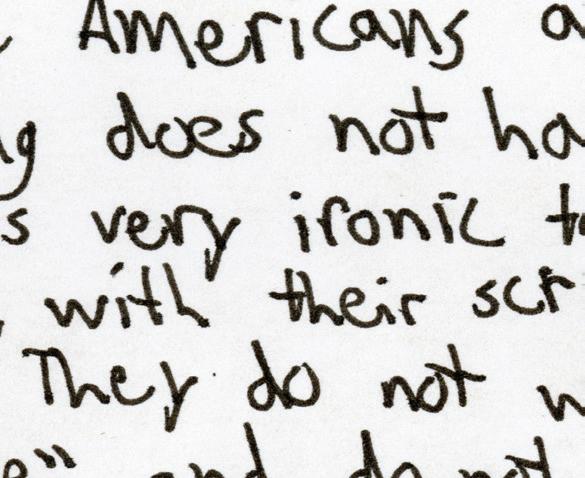 Americans a
g does not ha
s very ironic t
with their scr
They do not w
e" and do not